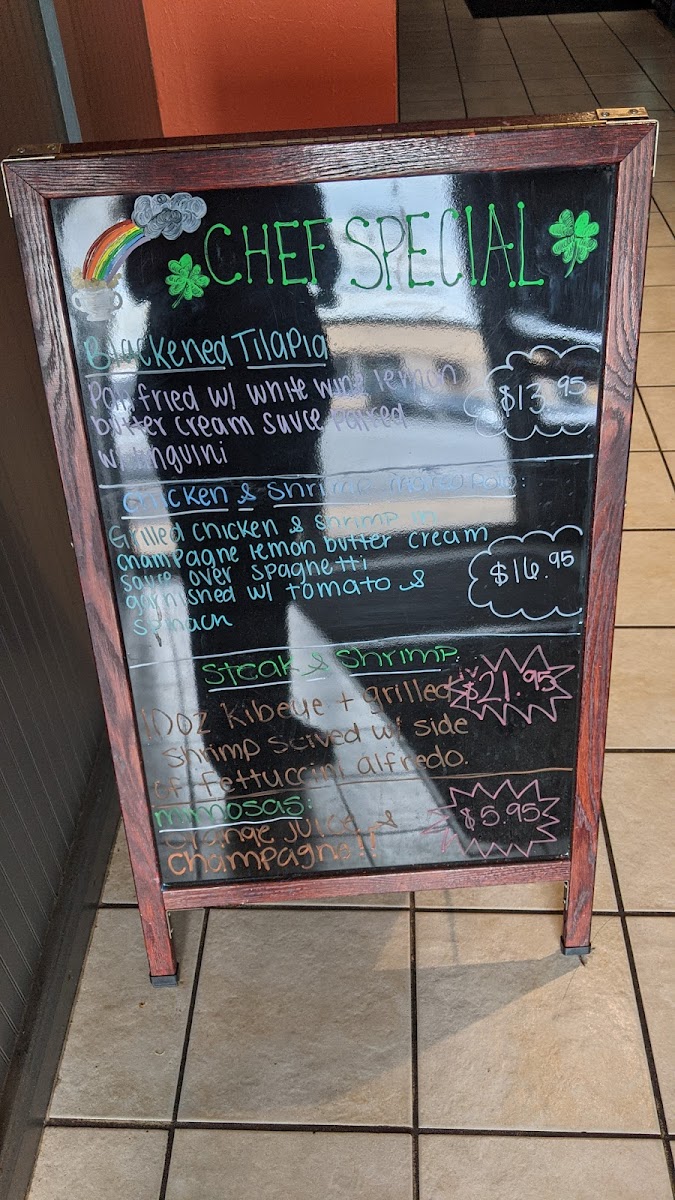 CHEF SPECIAL
Blackened Tilapia
Pan fried w/ white wine lemon
butter cream sauce Paired
w/ linguini
$13.95
Chicken & Shrimp
Grilled chicken & shrimp in
champagne lemon butter cream
sauce over spaghetti
garnished w/ tomato &
spinach
$16.95
Steak & Shrimp:
$21.95
10oz Ribeye + grilled
shrimp served w/ side
of fettuccini alfredo.
mimosas:
orange juice &
champagne!!
$5.95